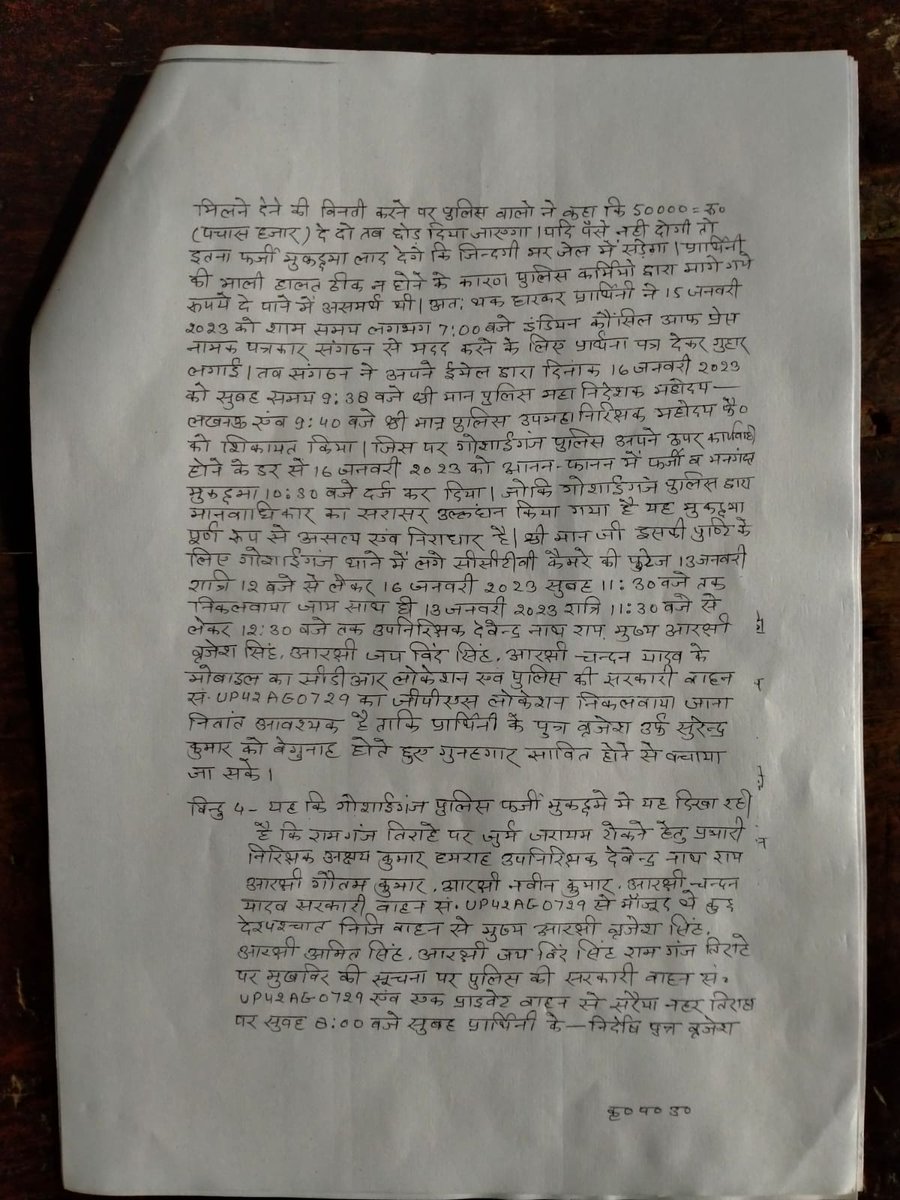 मिलने देने की विनती करने पर पुलिस वालो ने कहा कि 50000=रू०
(पचास हजार) दे दो तब छोड दिया जाएगा। यदि पैसे नही दोगी तो
इतना फर्जी मुकद्दमा लाद देगे कि जिन्दगी भर जेल में सडेगा। प्रार्थिनी
की माली हालत ठीक न होने के कारण पुलिस कर्मियो द्वारा मागे गये
रूपये दे पाने में असमर्थ थी। अतः थक हारकर प्रार्थिनी ने 15 जनवरी
2023 को शाम समय लगभग 7:00 बजे इंडियन कौंसिल आफ प्रेस
नामक पत्रकार संगठन से मदद करने के लिए प्रार्थना पत्र देकर गुहार
लगाई। तब संगठन ने अपने ईमेल द्वारा दिनांक 16 जनवरी 2023
को सुबह समय 9:38 बजे श्री मान पुलिस महा निदेशक महोदय —
लखनऊ एंव 9:40 बजे श्री मान पुलिस उपमहानिरिक्षक महोदय कै०
को शिकायत किया। जिस पर गोशाईगंज पुलिस अपने उपर कार्यवाही
होने के डर से 16 जनवरी 2023 को आनन-फानन में फर्जी व मनगंढत
मुकद्दमा 10:30 बजे दर्ज कर दिया। जोकि गोशाईगंज पुलिस द्वारा
मानवाधिकार का सरासर उल्लंघन किया गया है यह मुकद्दमा
पूर्ण रूप से असत्य एंव निराधार है। श्री मान जी इसकी पुष्टि के
लिए गोशाईगंज थाने में लगे सीसीटीवी कैमरे की फुटेज 13 जनवरी
रात्रि 12 बजे से लेकर 16 जनवरी 2023 सुबह 11:30 बजे तक
निकलवाया जाय साथ ही 13 जनवरी 2023 रात्रि 11:30 बजे से
लेकर 12:30 बजे तक उपनिरिक्षक देवेन्द्र नाथ राय, मुख्य आरक्षी
बृजेश सिंह, आरक्षी जय विंद सिंह, आरक्षी चन्दन यादव के
मोबाइल का सीडीआर लोकेशन एंव पुलिस की सरकारी वाहन
सं. UP42AG0729 का जीपीएस लोकेशन निकलवाया जाना
नितांत आवश्यक है ताकि प्रार्थिनी के पुत्र बृजेश उर्फ सुरेन्द्र
कुमार को बेगुनाह होते हुए गुनहगार साबित होने से बचाया
जा सके।
बिन्दु 4- यह कि गोशाईगंज पुलिस फर्जी मुकद्दमे मे यह दिखा रही
है कि रामगंज तिराहे पर जुर्म जरायम रोकने हेतु प्रभारी
निरिक्षक अक्षय कुमार हमराह उपनिरिक्षक देवेन्द्र नाथ राय
आरक्षी गौतम कुमार, आरक्षी नवीन कुमार, आरक्षी चन्दन
यादव सरकारी वाहन सं. UP42AG0729 से मौजूद थे कुछ
देरपश्चात निजि वाहन से मुख्य आरक्षी बृजेश सिंह,
आरक्षी अमित सिंह, आरक्षी जय विंद सिंह राम गंज तिराहे
पर मुखबिर की सूचना पर पुलिस की सरकारी वाहन सं.
UP42AG0729 एंव एक प्राइवेट वाहन से सरैया नहर तिराहा
पर सुबह 8:00 बजे सुबह प्रार्थिनी के — निर्दोष पुत्र बृजेश
कृ० प० उ०